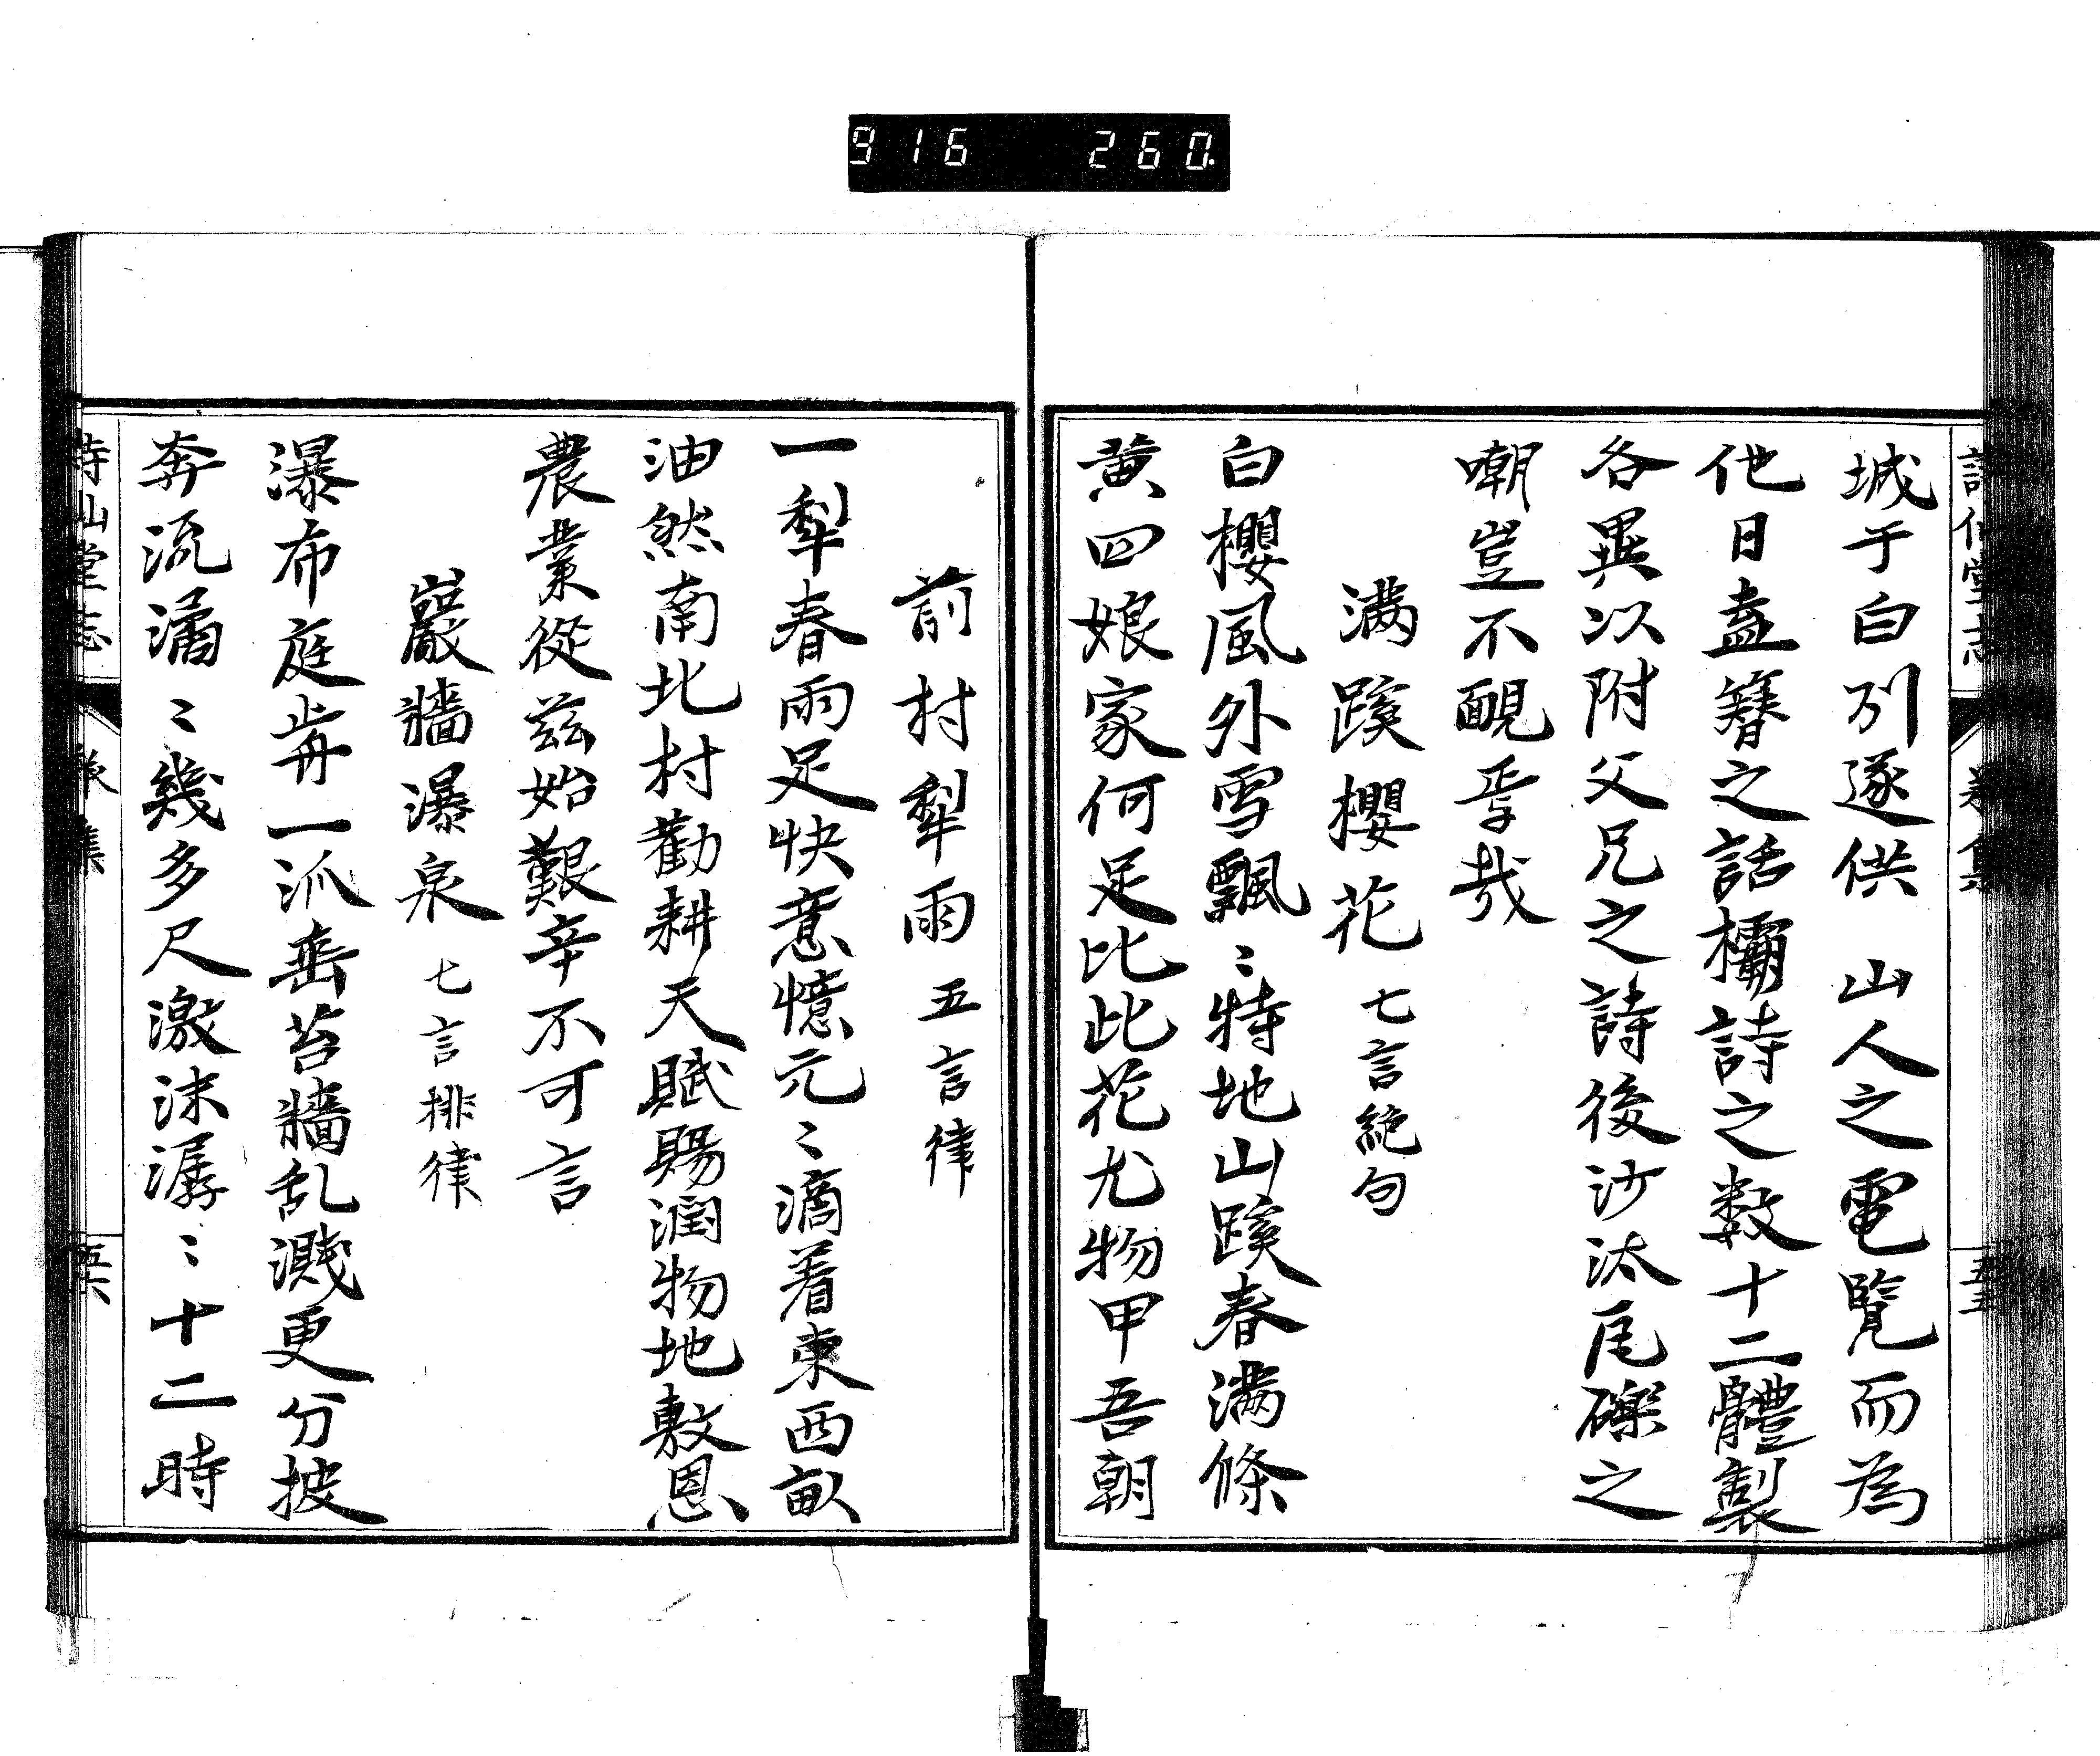 916 260
城于白列遂供 山人之電覽而為
他日盍簪之話欛詩之数十二體製
各異以附父兄之詩後沙汰瓦礫之
嘲豈不靦乎哉
満蹊櫻花 七言絶句
白櫻風外雪飄〻特地山蹊春満條
黄四娘家何足比比花尤物甲吾朝
前村犁雨 五言律
一犁春雨足快意憶元〻滴着東西畝
油然南北村勸耕天賦賜潤物地敷恩
農業從茲始艱辛不可言
巖牆瀑泉 七言排律
瀑布庭前一派垂苔牆乱濺更分披
奔流潏〻幾多尺激沫潺〻十二時
詩仙堂志
五六